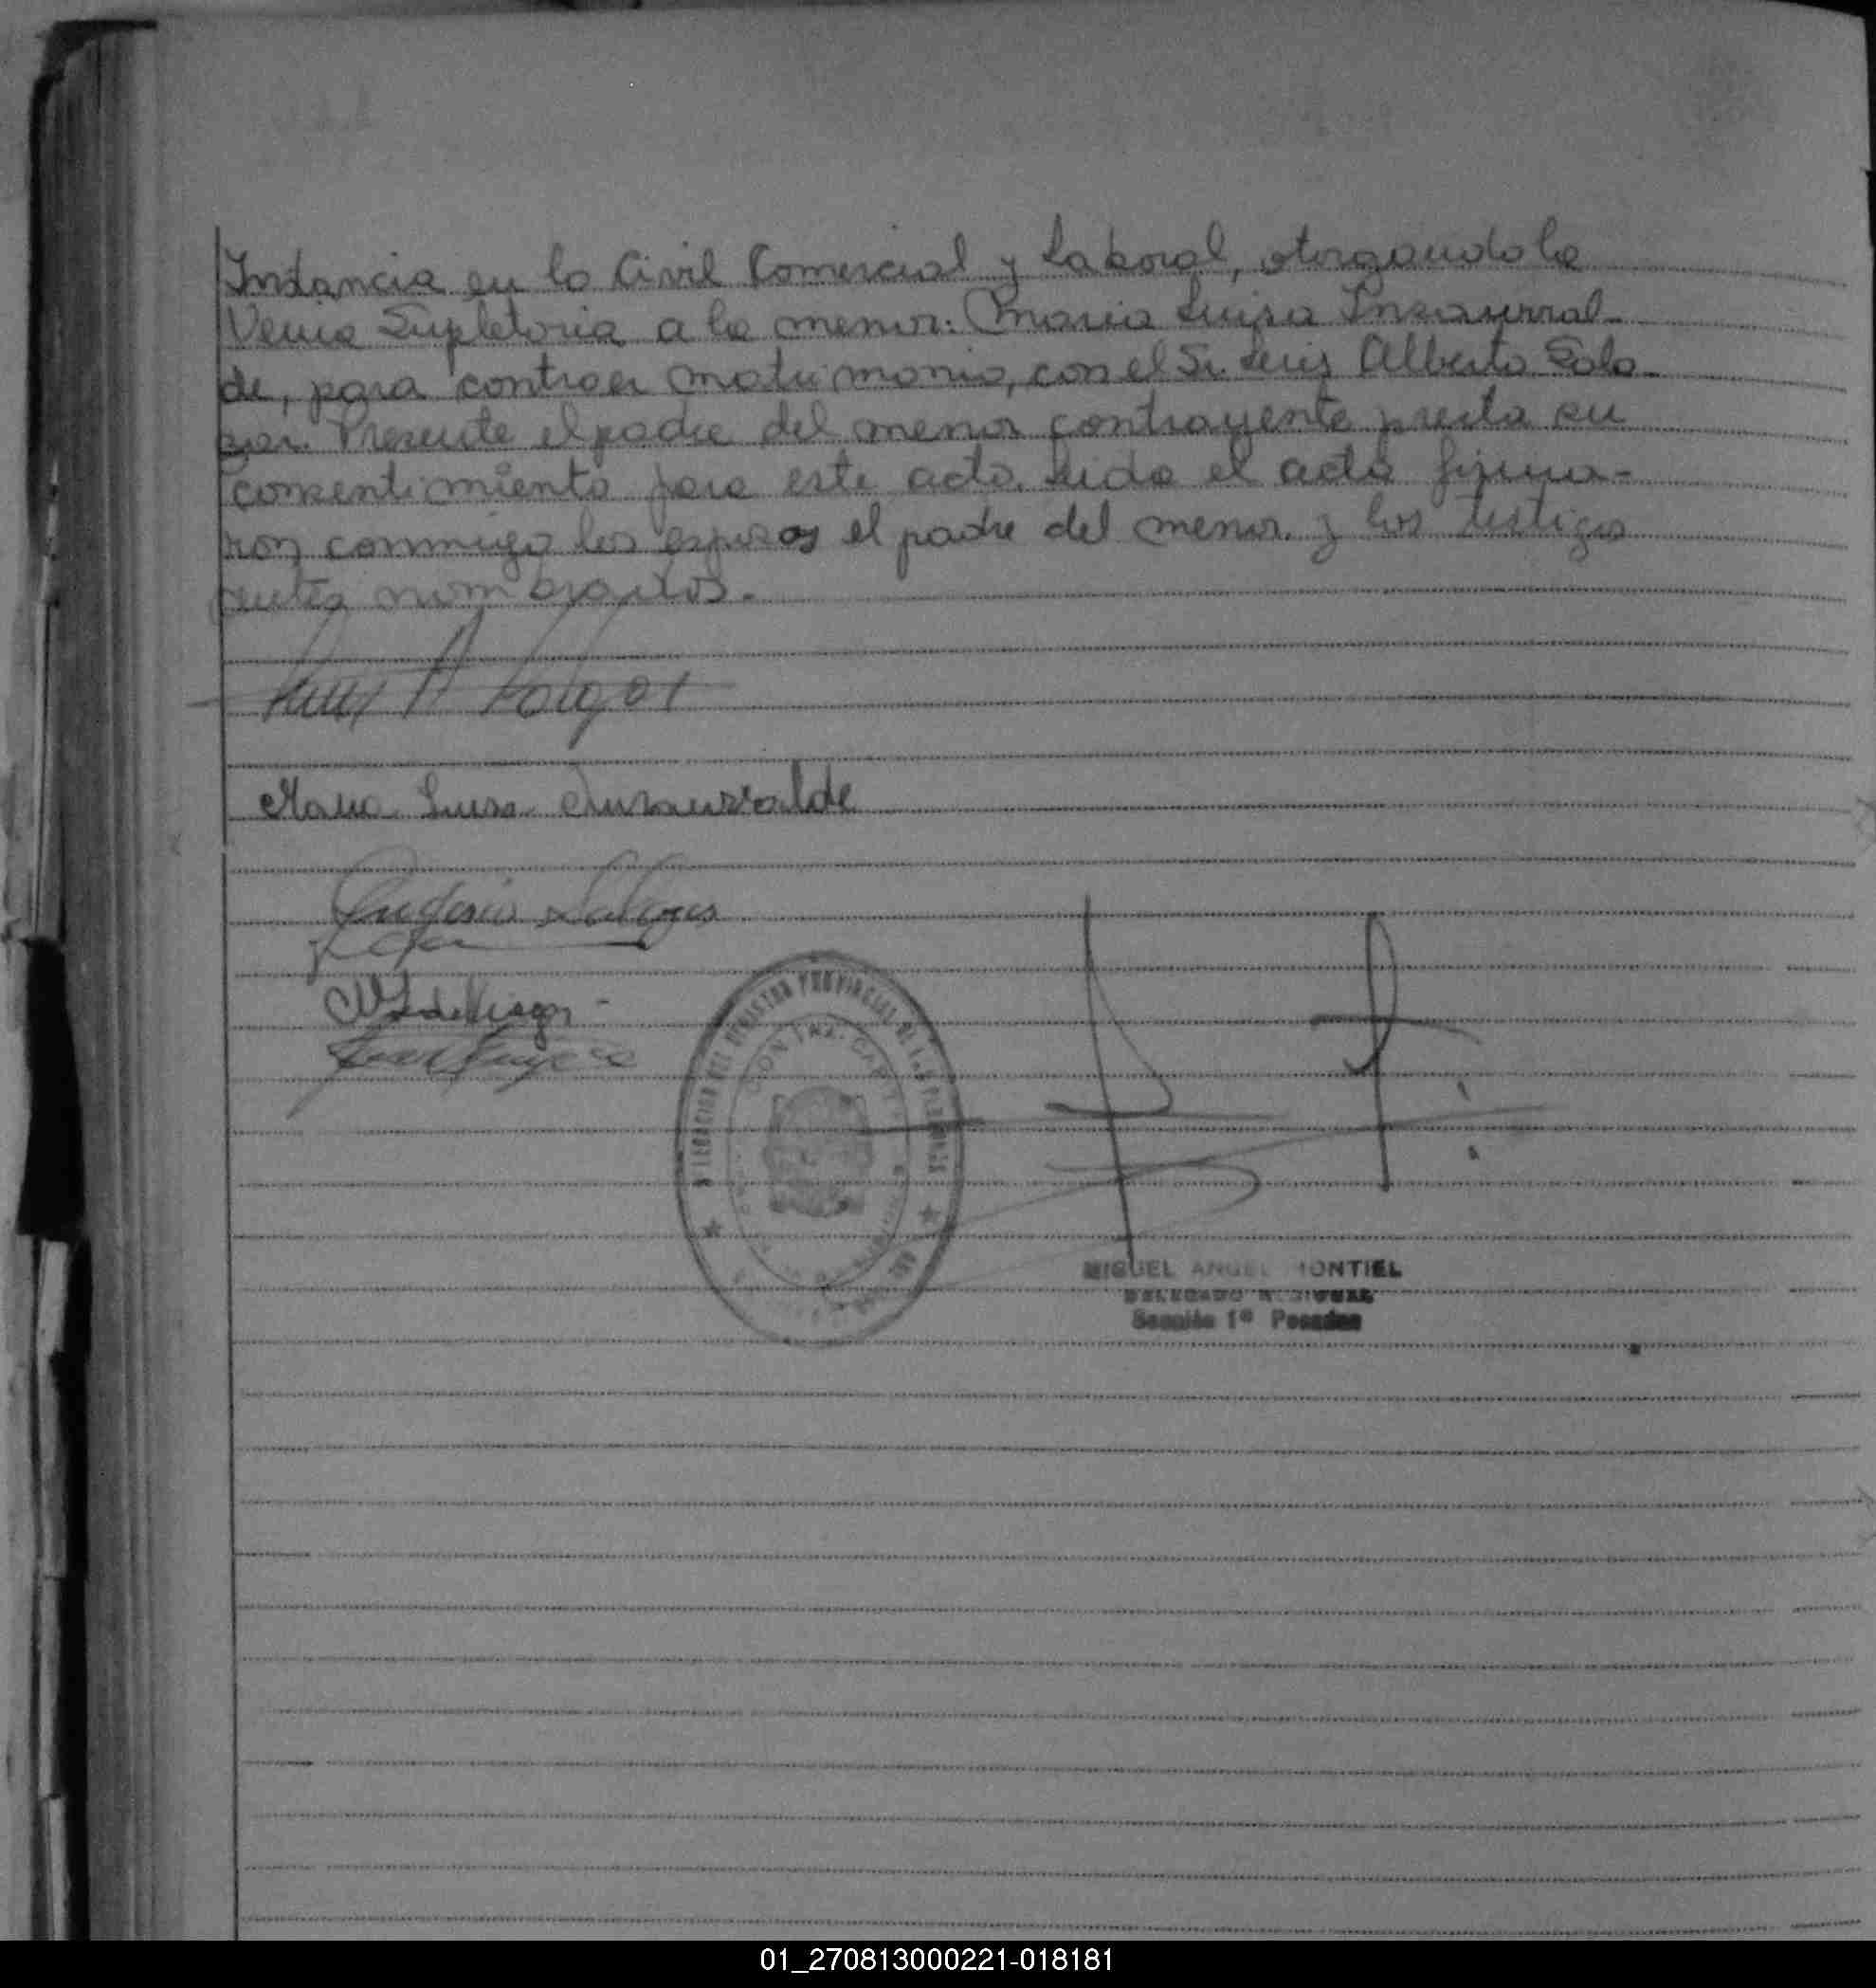 Instancia en lo Civil Comercial y Laboral, otorgandole
Venia Supletoria a la menor: Maria Luisa Insaurral-
de, para contraer matrimonio, con el Sr. Luis Alberto Sala-
zar. Presente el padre del menor contrayente presta su
consentimiento para este acto. Leida el acta firma-
ron conmigo los esposos el padre del menor y los testigos
antes nombrados.
Luis A
Maria Luisa Insaurralde
DEL REGISTRO PROVINCIAL DE LAS PERSONAS
MIGUEL ANGEL MONTIEL
DELEGADO REGIONAL
Sección 1ª Posadas
01_270813000221-018181